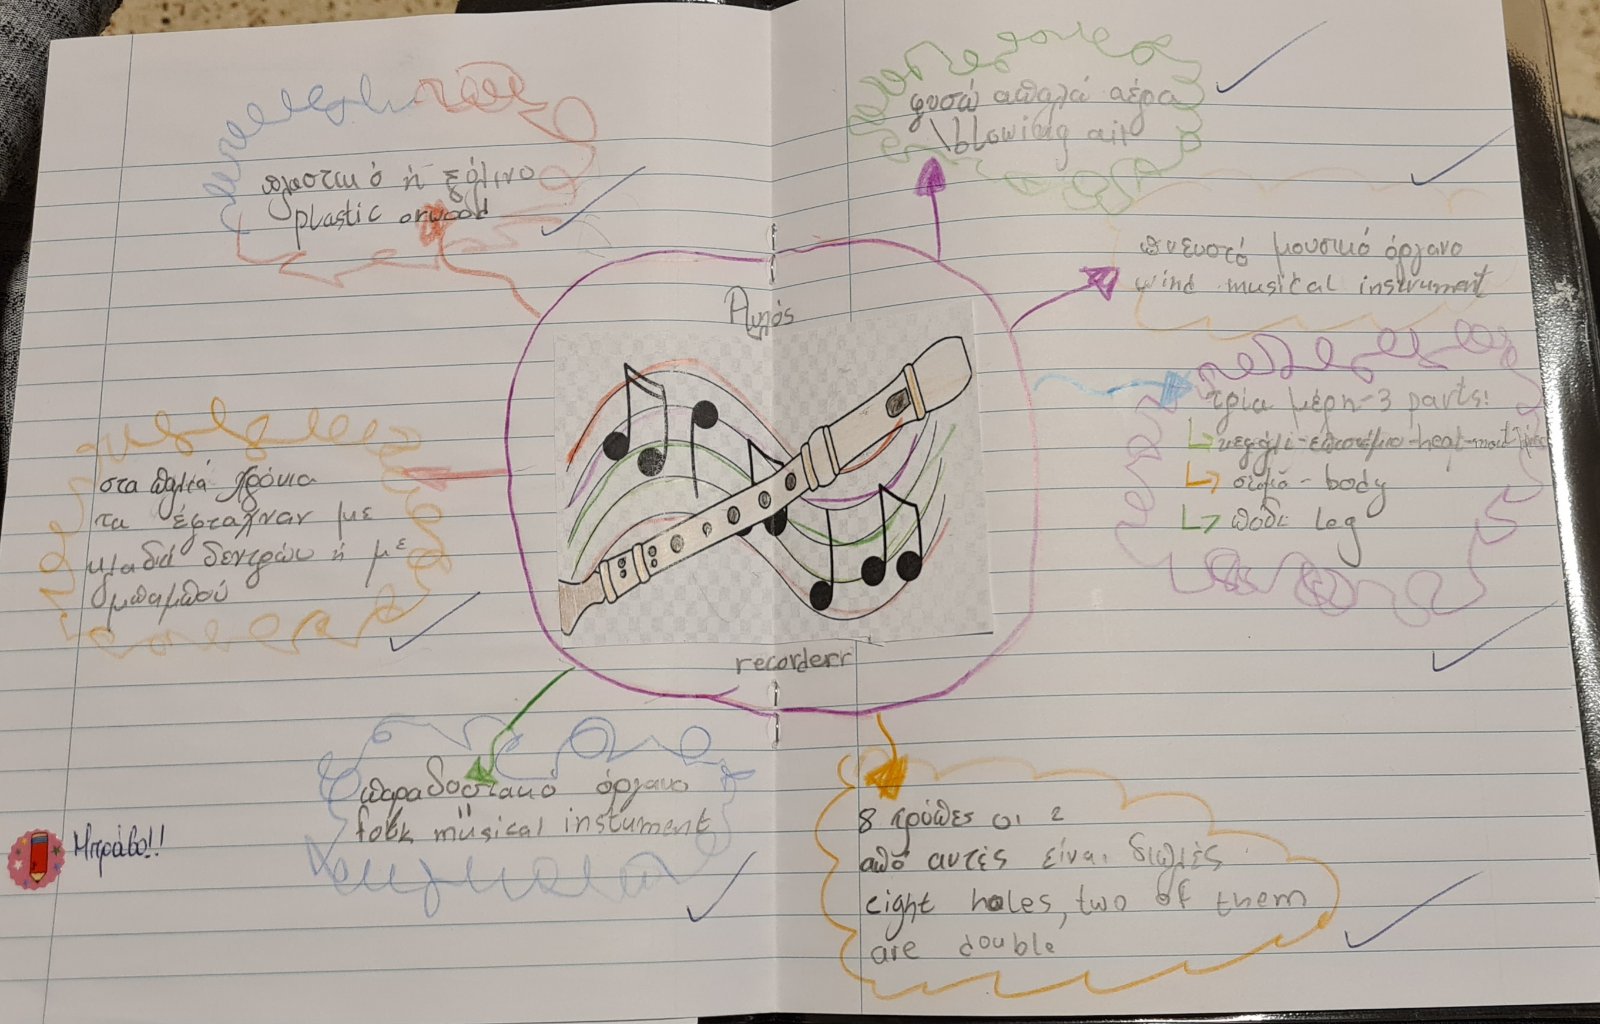 φυσώ απαλά αέρα
\blowing air
πλαστικό ή ξύλινο
plastic or wood
πνευστό μουσικό όργανο
wind musical instrument
Αυλός
τρία μέρη-3 parts!
κεφάλι-επιστόμιο-head-mouthpiece
σώμα - body
πόδι leg
στα παλιά χρόνια
τα έφταχναν με
κλαδιά δεντρών ή με
μπαμπού
recorderr
παραδοσιακό όργανο
folk müsical instument
8 τρύπες οι 2
από αυτές είναι διπλές
eight holes, two of them
are double
Μπράβο!!